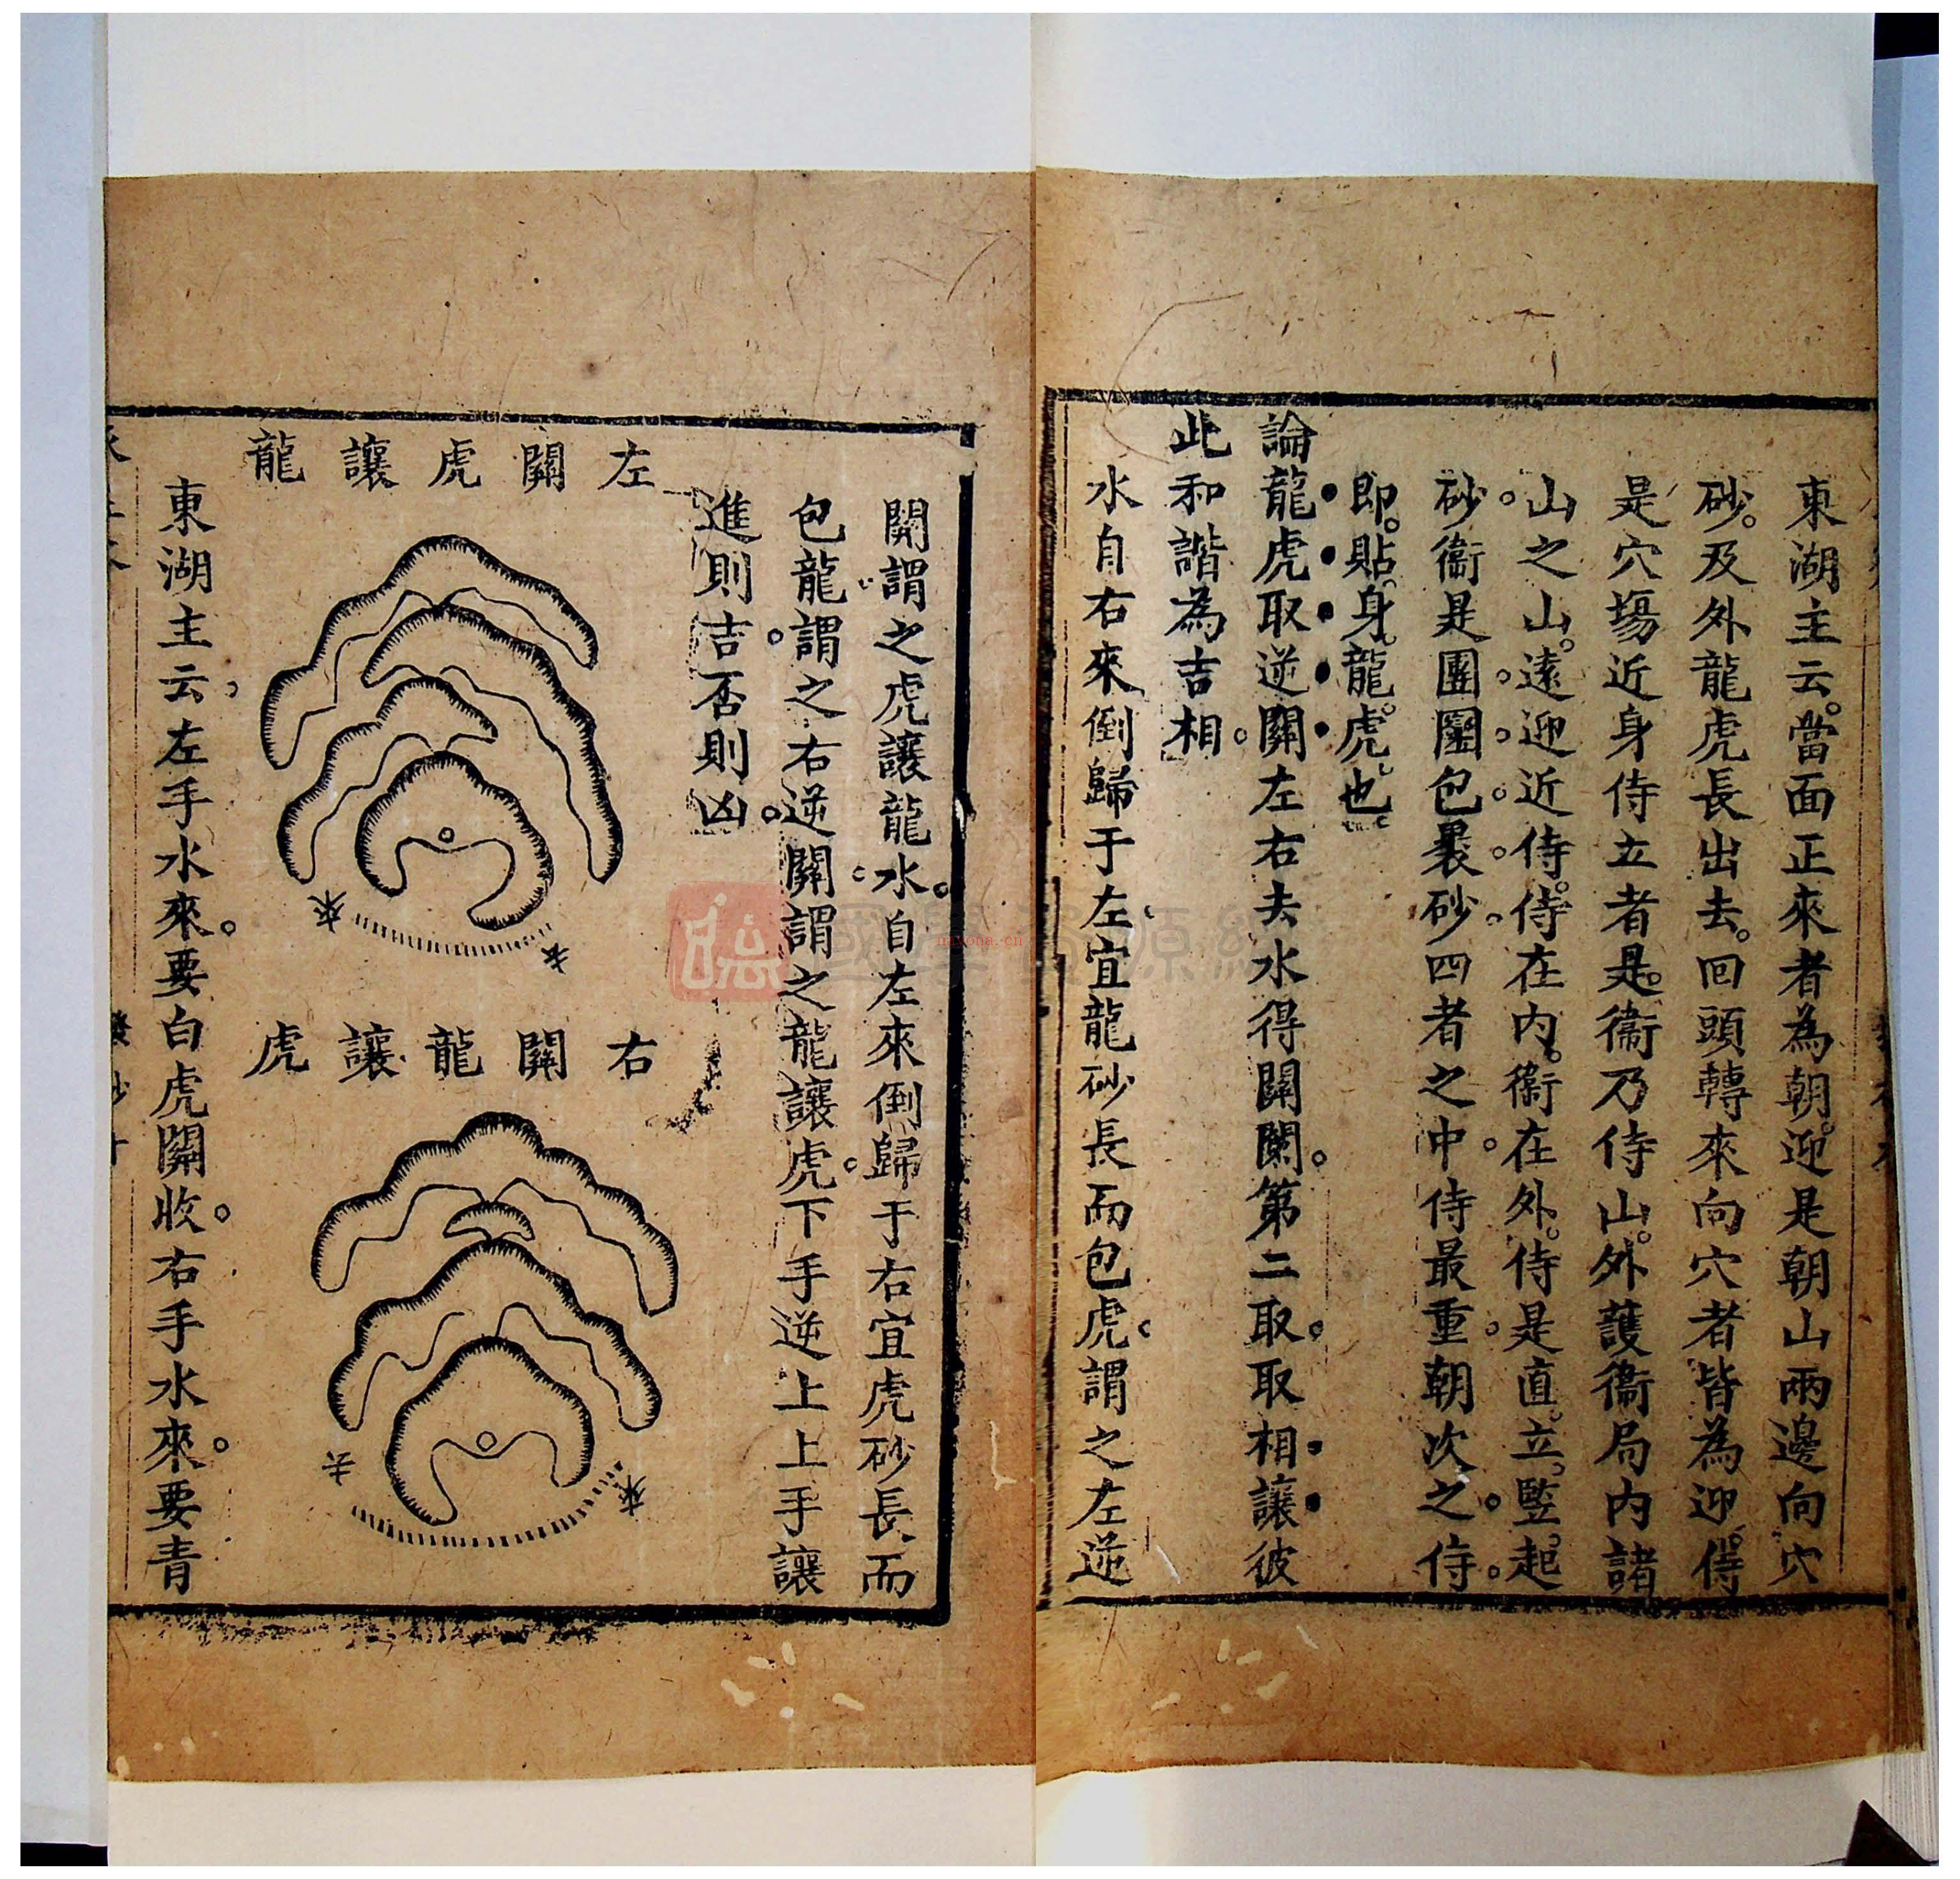 東湖主云。當面正來者為朝。迎是朝山兩邊向穴
砂。及外龍虎長出去。回頭轉來向穴者皆為迎。侍
是穴塲近身侍立者是。衞乃侍山。外護衞局内諸
山之山。遠迎近侍。侍在内。衞在外。侍是直。立。竪。起
砂。衞是團。圞。包。褁。砂。四者之中。侍最重。朝次之。侍。
即。貼。身。龍。虎。也
論龍虎取逆關左右去水得關闌。第二取。取相讓彼
此和諧為吉相。
水自右來倒歸于左。宜龍砂長而包虎。謂之左逆
關。謂之虎讓龍。水。自左來倒歸于右宜虎砂長。而
包龍。謂之右逆關。謂之龍讓虎。下手逆上上手讓
進則吉。否則凶。
左關虎讓龍
來
去
右關龍讓虎
去
來
東湖主云。左手水來。要白虎關收。右手水來。要青
國學資源網
nayona.cn